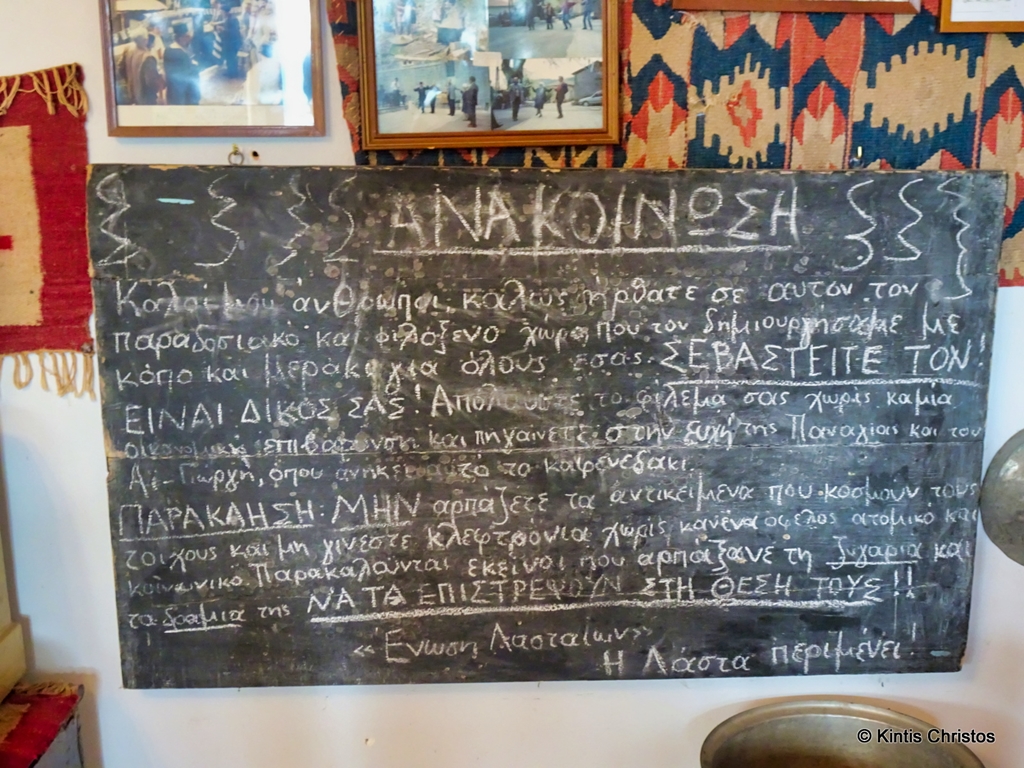 ΑΝΑΚΟΙΝΩΣΗ
Καλοί μου άνθρωποι, καλώς ήρθατε σε αυτόν τον
παραδοσιακό και φιλόξενο χώρο που τον δημιουργήσαμε με
κόπο και μεράκι για όλους εσάς. ΣΕΒΑΣΤΕΙΤΕ ΤΟΝ!
ΕΙΝΑΙ ΔΙΚΟΣ ΣΑΣ! Απολαύστε το φίλεμα σας χωρίς καμία
οικονομική επιβάρυνση και πηγαίνετε στην ευχή της Παναγίας και του
Αϊ-Γιώργη, όπου ανήκει αυτό το καφενεδάκι.
ΠΑΡΑΚΛΗΣΗ: ΜΗΝ αρπάζετε τα αντικείμενα που κοσμούν τους
τοίχους και μη γίνεστε κλεφτρόνια χωρίς κανένα όφελος ατομικό και
κοινωνικό. Παρακαλούνται εκείνοι που αρπάξανε τη ζυγαριά και
τα δράμια της ΝΑ ΤΑ ΕΠΙΣΤΡΕΨΟΥΝ ΣΤΗ ΘΕΣΗ ΤΟΥΣ!!
«Ένωση Λασταίων»
Η Λάστα περιμένει!
© Kintis Christos